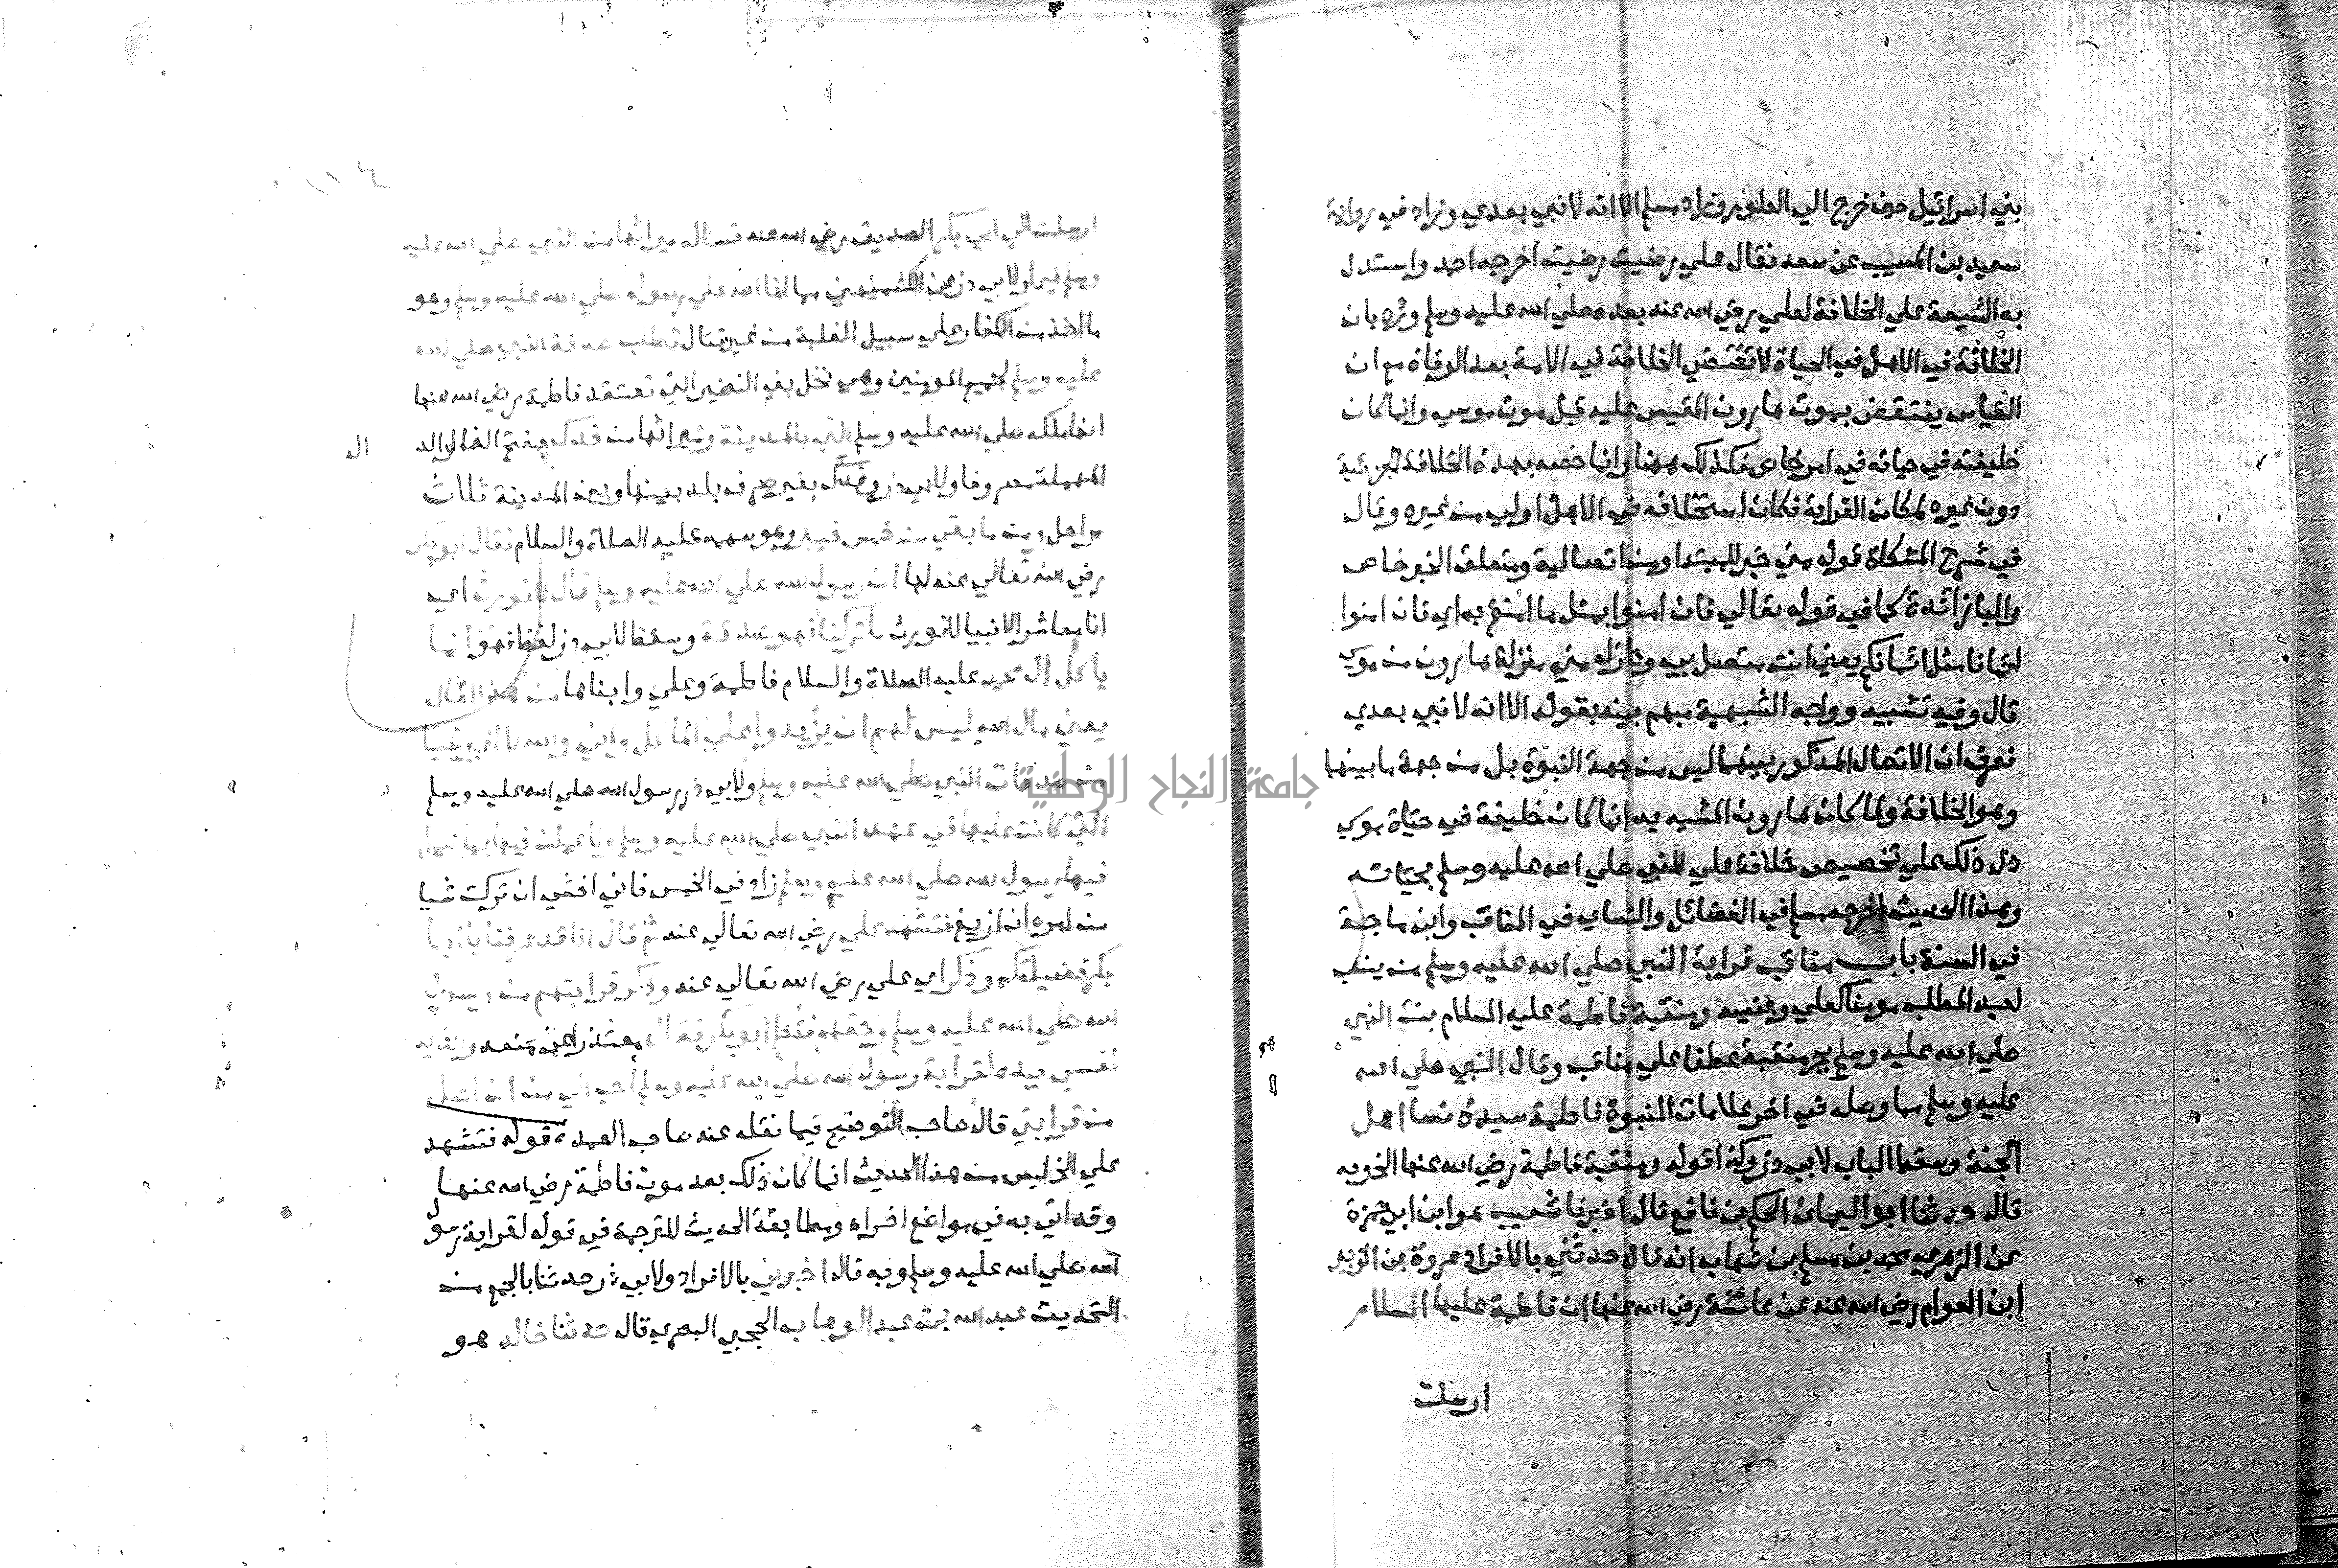 بني اسرائيل حين خرج الي الطور وزاد مسلم الا انه لا نبي بعدي وزاد في رواية
سعيد بن المسيب عن سعد فقال علي رضيت رضيت اخرجه احمد واستدل
به الشيعة علي الخلافة لعلي رضي الله عنه بعده صلي الله عليه وسلم ورد بان
الخلافة في الاهل في الحياة لا تقتضي الخلافة في الامة بعد الوفاة مع ان
القياس ينتقض بموت هارون المقيس عليه قبل موت موسي وانما كان
خليفته في حياته في امر خاص فكذلك ههنا وانما خصه بهذه الخلافة الجزئية
دون غيره لمكان القرابة فكان استخلافه في الاهل اولي من غيره وقال
في شرح المشكاة قوله مني خبر للمبتدا ومن اتصالية ومتعلق الخبر خاص
والبا زائدة كما في قوله تعالي فان امنوا بمثل ما امنتم به اي فان امنوا
ايمانا مثل ايمانكم يعني انت متصل بي ونازل مني منزلة هارون من موسي
قال وفيه تشبيه ووجه الشبه مبهم بينه بقوله الا انه لا نبي بعدي
فعرف ان الاتصال المذكور بينهما ليس من جهة النبوة بل من جهة ما بينهما
وهو الخلافة ولما كان هارون المشبه به انما كان خليفة في حياة موسي
دل ذلك علي تخصيص خلافة علي للنبي صلي الله عليه وسلم بحياته
وهذا الحديث اخرجه مسلم في الفضائل والنساي في المناقب وابن ماجة
في السنة باب مناقب قرابة النبي صلي الله عليه وسلم من ينسب
لعبد المطلب مومنا كعلي وبنيه ومنقبة فاطمة عليه السلام بنت النبي
صلي الله عليه وسلم بجر منقبة عطفا علي مناقب وقال النبي صلي الله
عليه وسلم مما وصله في اخر علامات النبوة فاطمة سيدة نسا اهل
الجنة وسقط الباب لابي ذر وكذا قوله ومنقبة فاطمة رضي الله عنها الخ وبه
قال حدثنا ابو اليمان الحكم بن نافع قال اخبرنا شعيب هو ابن ابي حمزة
عن الزهري محمد بن مسلم بن شهاب انه قال حدثني بالافراد عروة بن الزبير
ابن العوام رضي الله عنه عن عائشة رضي الله عنها ان فاطمة عليها السلام
ارسلت
ارسلت الي ابي بكر الصديق رضي الله عنه تساله ميراثها من النبي صلي الله عليه
وسلم فيما ولابي ذر عن الكشميهني مما افا الله علي رسوله صلي الله عليه وسلم وهو
ما اخذ من الكفار علي سبيل الغلبة من غير قتال تطلب صدقة النبي صلي الله
عليه وسلم لجميع المومنين وهي نخل بني النضير التي تعتقد فاطمة رضي الله عنها
انها ملكه صلي الله عليه وسلم التي بالمدينة وميراثها من فدك بفتح الفا والد
ال
المهملة مصروفا ولابي ذر وفدك بغير صرف بلد بينها وبين المدينة ثلاث
مراحل ومن ما بقي من خمس خيبر وهو سهمه عليه الصلاة والسلام فقال ابو بكر
رضي الله تعالي عنه لها ان رسول الله صلي الله عليه وسلم قال لا نورث اي
انا معاشر الانبيا لا نورث ما تركنا فهو صدقة وسقط لابي ذر لفظة فهو انما
ياكل ال محمد عليه الصلاة والسلام فاطمة وعلي وابناها من هذا المال
يعني مال الله ليس لهم ان يزيدوا علي الماكل واني والله لا اغير شيا
من صدقات النبي صلي الله عليه وسلم ولابي ذر رسول الله صلي الله عليه وسلم
التي كانت عليها في عهد النبي صلي الله عليه وسلم ولاعملن فيها بما عمل
فيها رسول الله صلي الله عليه وسلم زاد في الخمس فاني اخشي ان تركت شيا
من امره ان ازيغ فتشهد علي رضي الله تعالي عنه ثم قال انا قد عرفنا يا ابا
بكر فضيلتك وذكر اي علي رضي الله تعالي عنه وذكر قرابتهم من رسول
الله صلي الله عليه وسلم وحقهم فتكلم ابو بكر فقال معتذرا عن منعه والذي
نفسي بيده لقرابة رسول الله صلي الله عليه وسلم احب الي من ان اصل
من قرابتي قال صاحب التوضيح فيما نقله عنه صاحب العمدة قوله فتشهد
علي الخ ليس من هذا الحديث انما كان ذلك بعد موت فاطمة رضي الله عنها
وقد اتي به في مواضع اخر اه ومطابقة الحديث للترجمة في قوله لقرابة رسول
الله صلي الله عليه وسلم وبه قال اخبرني بالافراد ولابي ذر حدثنا بالجمع من
التحديث عبد الله بن عبد الوهاب الحجبي البصري قال حدثنا خالد هو
جامعة النجاح الوطنية